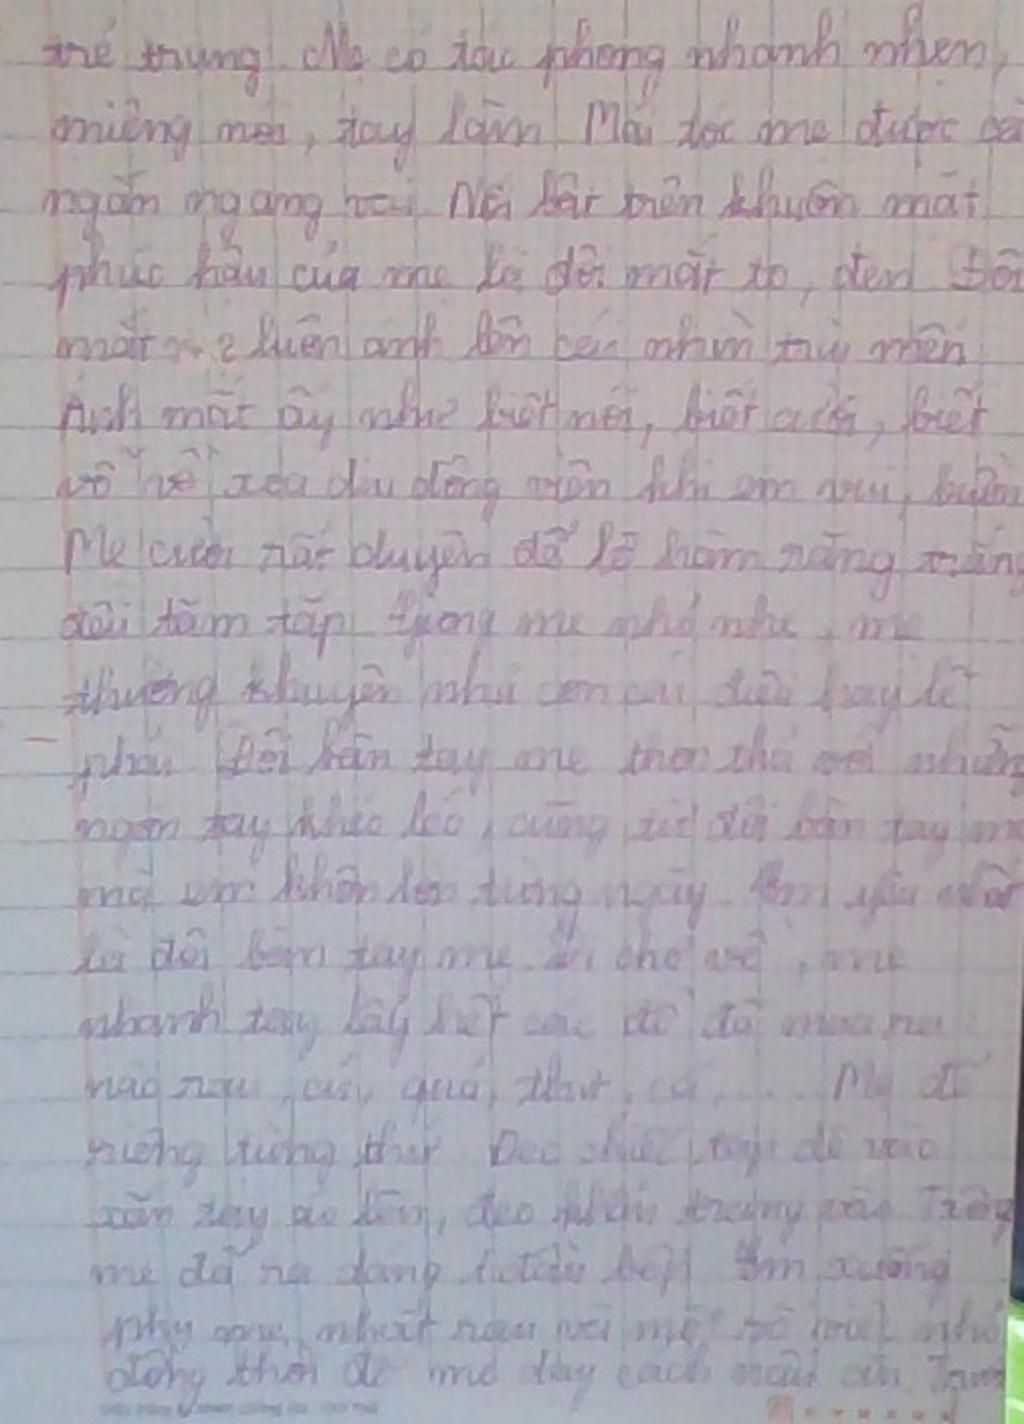 trẻ trung. Mẹ có tác phong nhanh nhẹn,
miệng nói, tay làm. Mái tóc mẹ được cắt
ngắn ngang vai. Nổi bật trên khuôn mặt
phúc hậu của mẹ là đôi mắt to, đen. Đôi
mắt luôn ánh lên cái nhìn trìu mến
Ánh mắt ấy như biết nói, biết cười, biết
vỗ về xoa dịu động viên khi em vui, buồn
Mẹ cười rất duyên để lộ hàm răng trắng
đều tăm tắp. Giọng mẹ nhỏ nhẹ, mẹ
thường khuyên nhủ con cái điều hay lẽ
phải. Đôi bàn tay mẹ thon thả với những
ngón tay khéo léo, cũng từ đôi bàn tay mẹ
mà em khôn lớn từng ngày. Em yêu nhất
là đôi bàn tay mẹ. Đi chợ về, mẹ
nhanh tay lấy hết các đồ đã mua ra
nào rau, củ, quả, thịt, cá,.... Mẹ để
riêng từng thứ. Đeo chiếc tạp dề vào
xắn tay áo lên, đeo khẩu trang vào. Trông
mẹ đã ra dáng đầu bếp. Em xuống
phụ mẹ nhặt rau với một rổ nhỏ
đồng thời để mẹ dạy cách nấu ăn.